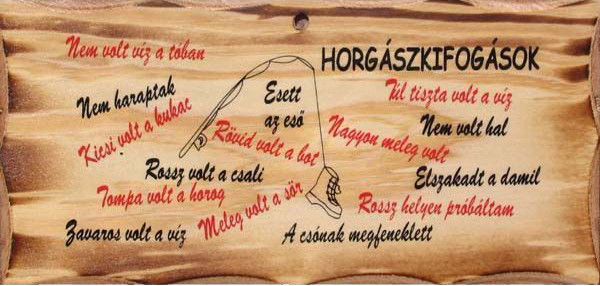 HORGÁSZKIFOGÁSOK
Nem volt víz a tóban
Nem haraptak
Kicsi volt a kukac
Esett
az eső
Rövid volt a bot
Túl tiszta volt a víz
Nem volt hal
Nagyon meleg volt
Rossz volt a csali
Tompa volt a horog
Meleg volt a sör
Elszakadt a damil
Rossz helyen próbáltam
Zavaros volt a víz
A csónak megfeneklett